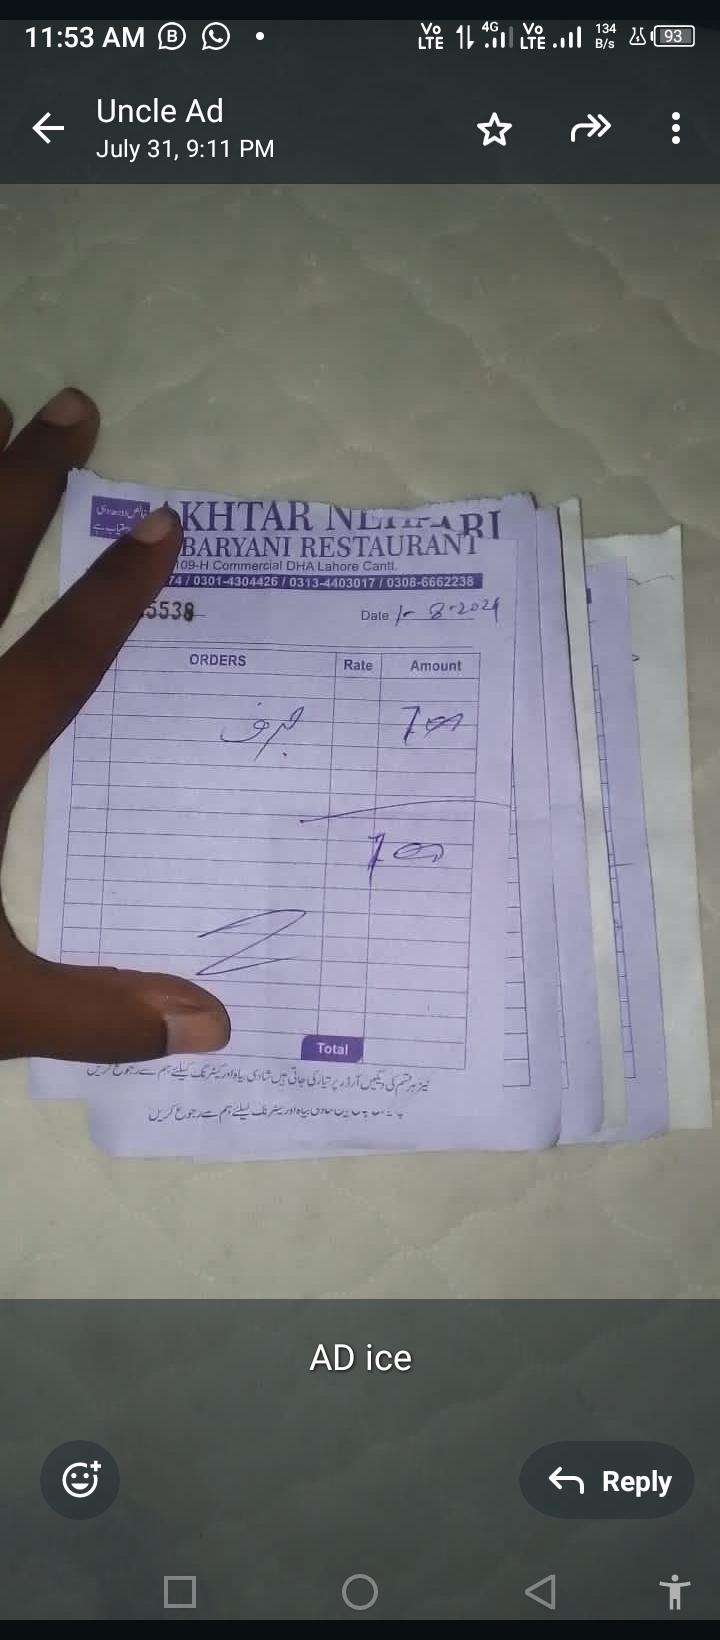 11:53 AM
Vo LTE 4G Vo LTE 134 B/s 93
Uncle Ad
July 31, 9:11 PM
KHTAR
BARYANI RESTAURANT
109-H Commercial DHA Lahore Cantt.
74 / 0301-4304426 / 0313-4403017 / 0308-6662238
5538
Date 1-8-2024
ORDERS Rate Amount
برف 700
700
Total
نیز ہر قسم کی دیگیں آرڈر پر تیار کی جاتی ہیں شادی بیاہ اور کیٹرنگ کیلئے ہم سے رجوع کریں
بیاہ اور کیٹرنگ کیلئے ہم سے رجوع کریں
AD ice
Reply